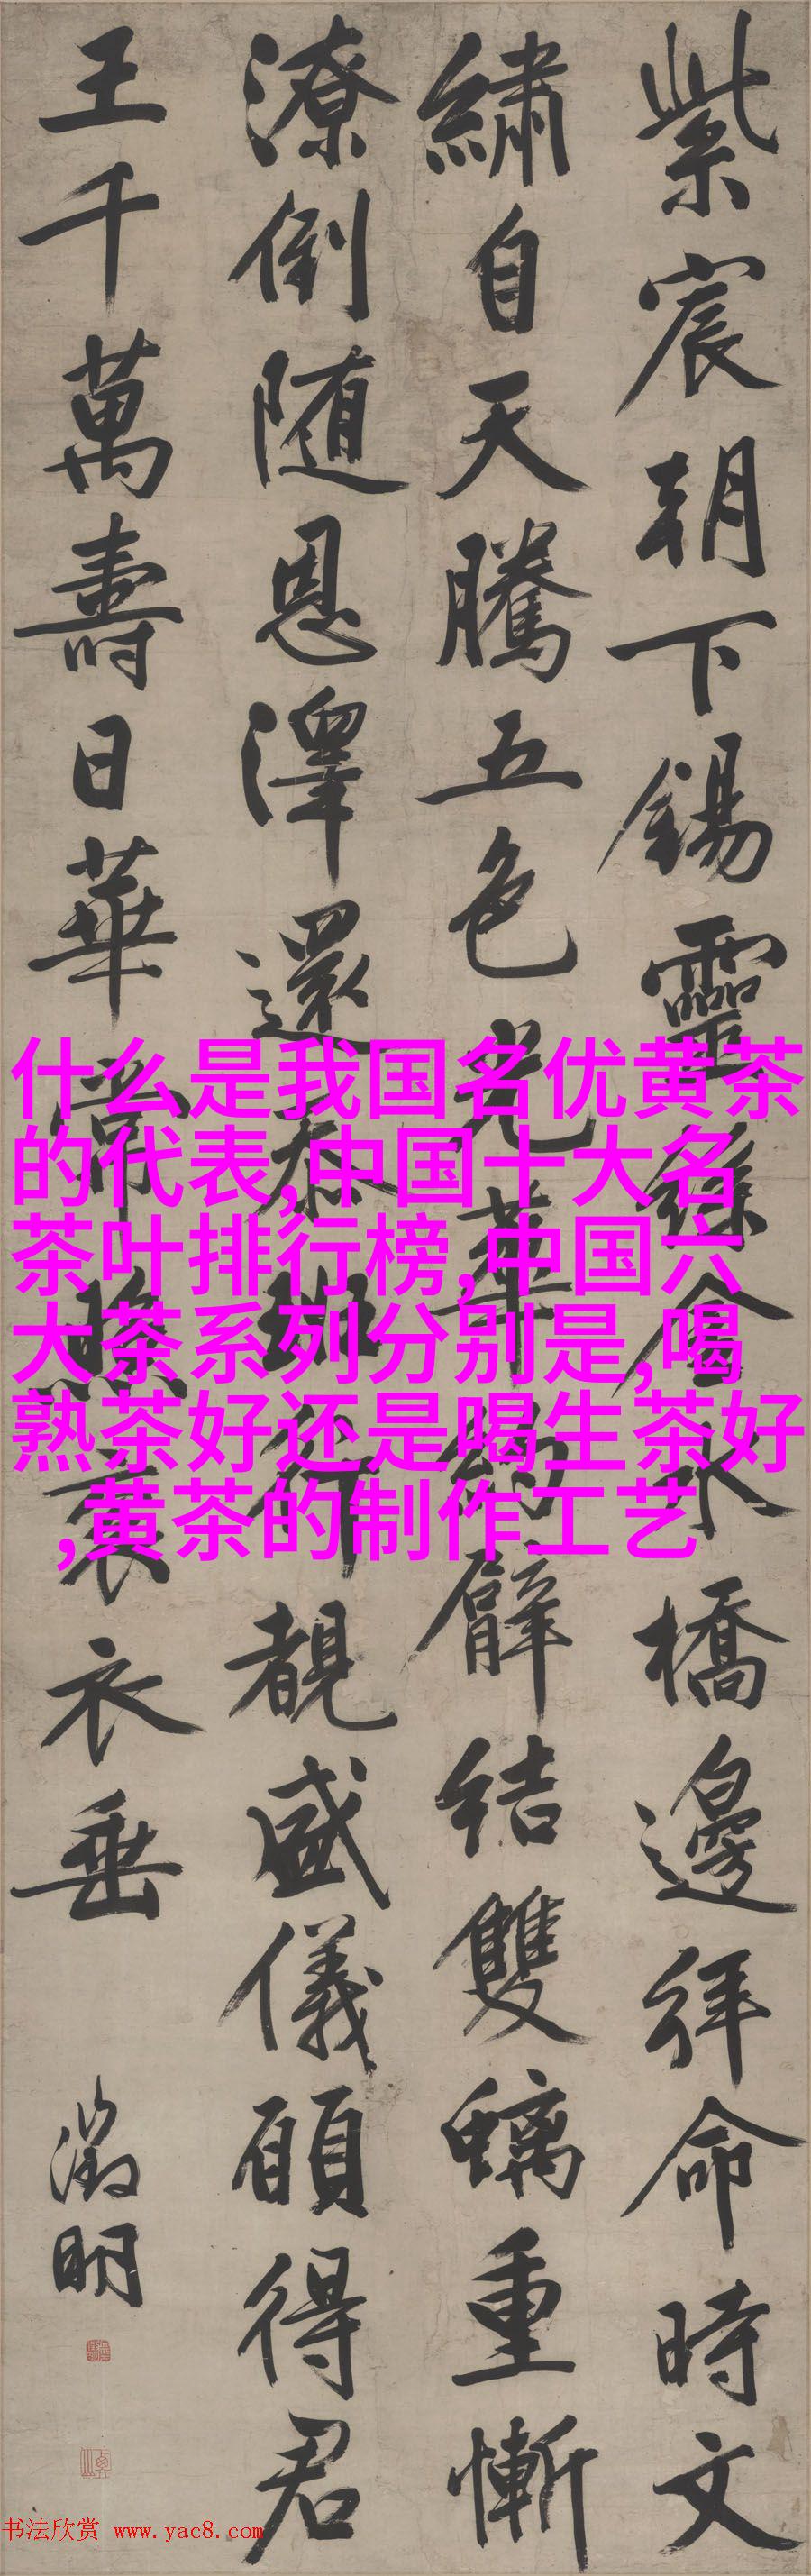 紫宸朝下錫靈絲金水橋邊拜命時文
繡自天騰五色光華約臂結雙螭重慚
潦倒随恩澤還忝班行覩盛儀願得君
王千萬壽日華常照袞衣垂
徵明
什么是我国名优黄茶
的代表,中国十大名
茶叶排行榜,中国六
大茶系列分别是,喝
熟茶好还是喝生茶好
,黄茶的制作工艺
书法欣赏 www.yac8.com